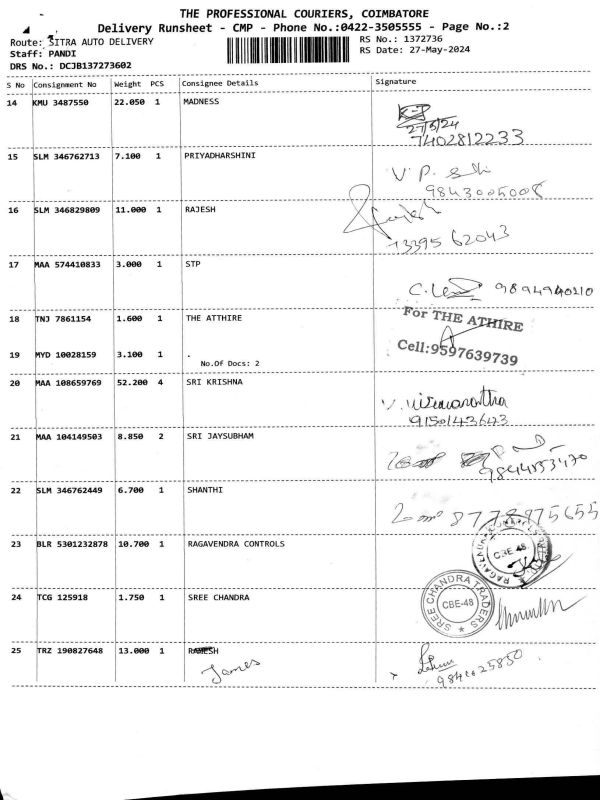 THE PROFESSIONAL COURIERS, COIMBATORE
Delivery Runsheet - CMP - Phone No.:0422-3505555 - Page No.:2
Route: SITRA AUTO DELIVERY RS No.: 1372736
Staff: PANDI RS Date: 27-May-2024
DRS No.: DCJB137273602
S No Consignment No Weight PCS Consignee Details Signature
14 KMU 3487550 22.050 1 MADNESS
27/5/24
7402812233
15 SLM 346762713 7.100 1 PRIYADHARSHINI
V. P.
9843005008
16 SLM 346829809 11.000 1 RAJESH
Rajesh
73395 62043
17 MAA 574410833 3.000 1 STP
9894940210
18 TNJ 7861154 1.600 1 THE ATTHIRE
For THE ATHIRE
19 MYD 10028159 3.100 1 .
No.Of Docs: 2
Cell:9597639739
20 MAA 108659769 52.200 4 SRI KRISHNA
9150143643
21 MAA 104149503 8.850 2 SRI JAYSUBHAM
22 SLM 346762449 6.700 1 SHANTHI
8778975655
23 BLR 5301232878 10.700 1 RAGAVENDRA CONTROLS
CBE-48
24 TCG 125918 1.750 1 SREE CHANDRA
SREE CHANDRA TRADERS
CBE-48
25 TRZ 190827648 13.000 1
James